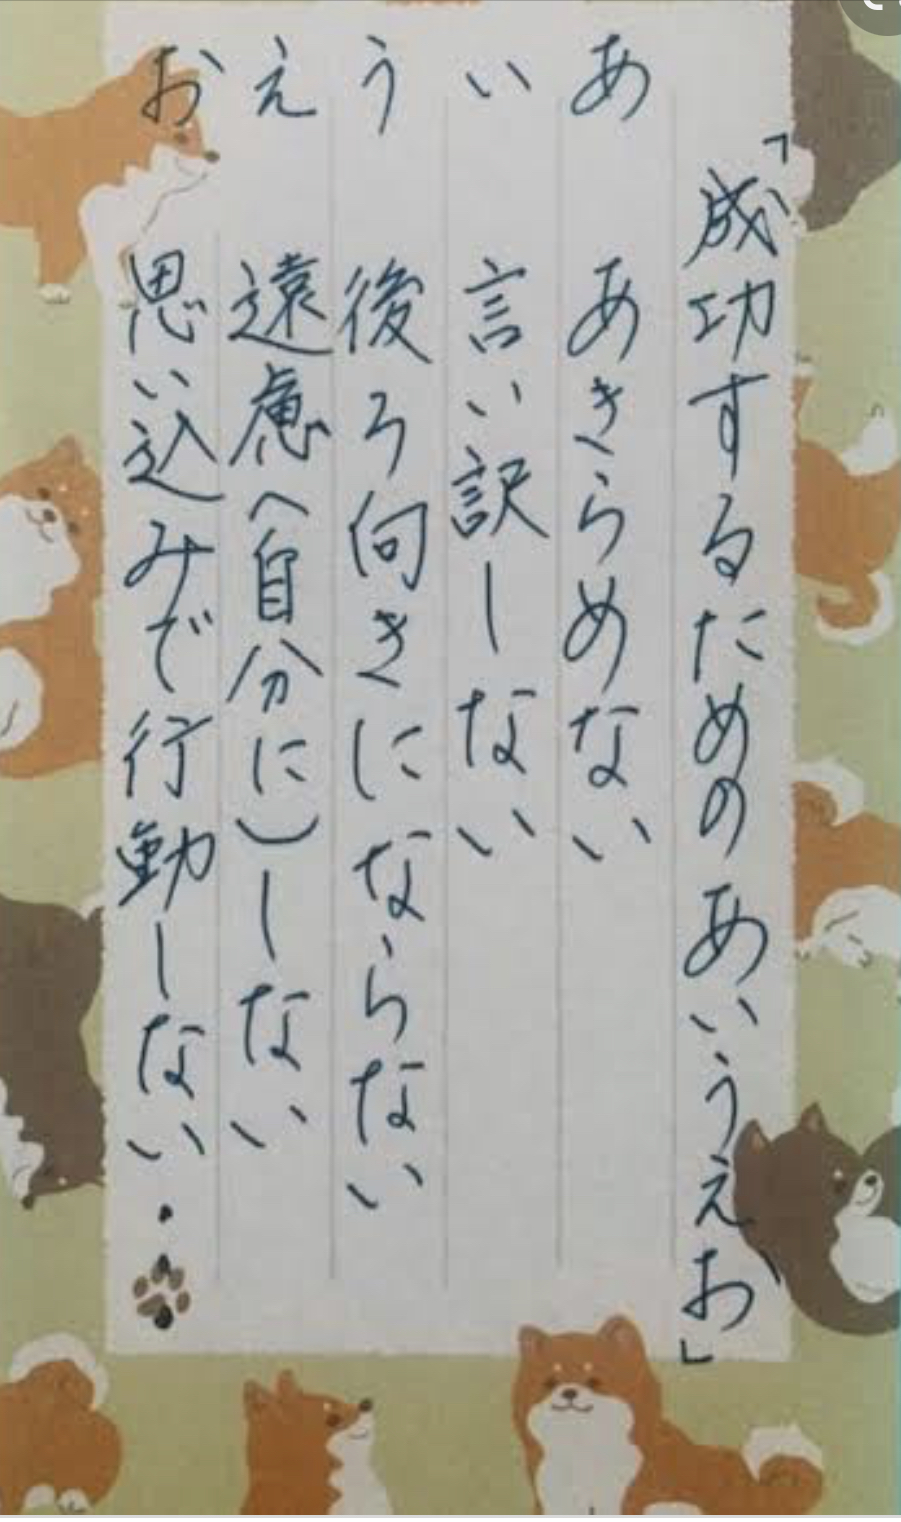 「成功するためのあいうえお」
あ あきらめない
い 言い訳しない
う 後ろ向きにならない
え 遠慮(自分に)しない
お 思い込みで行動しない・・・